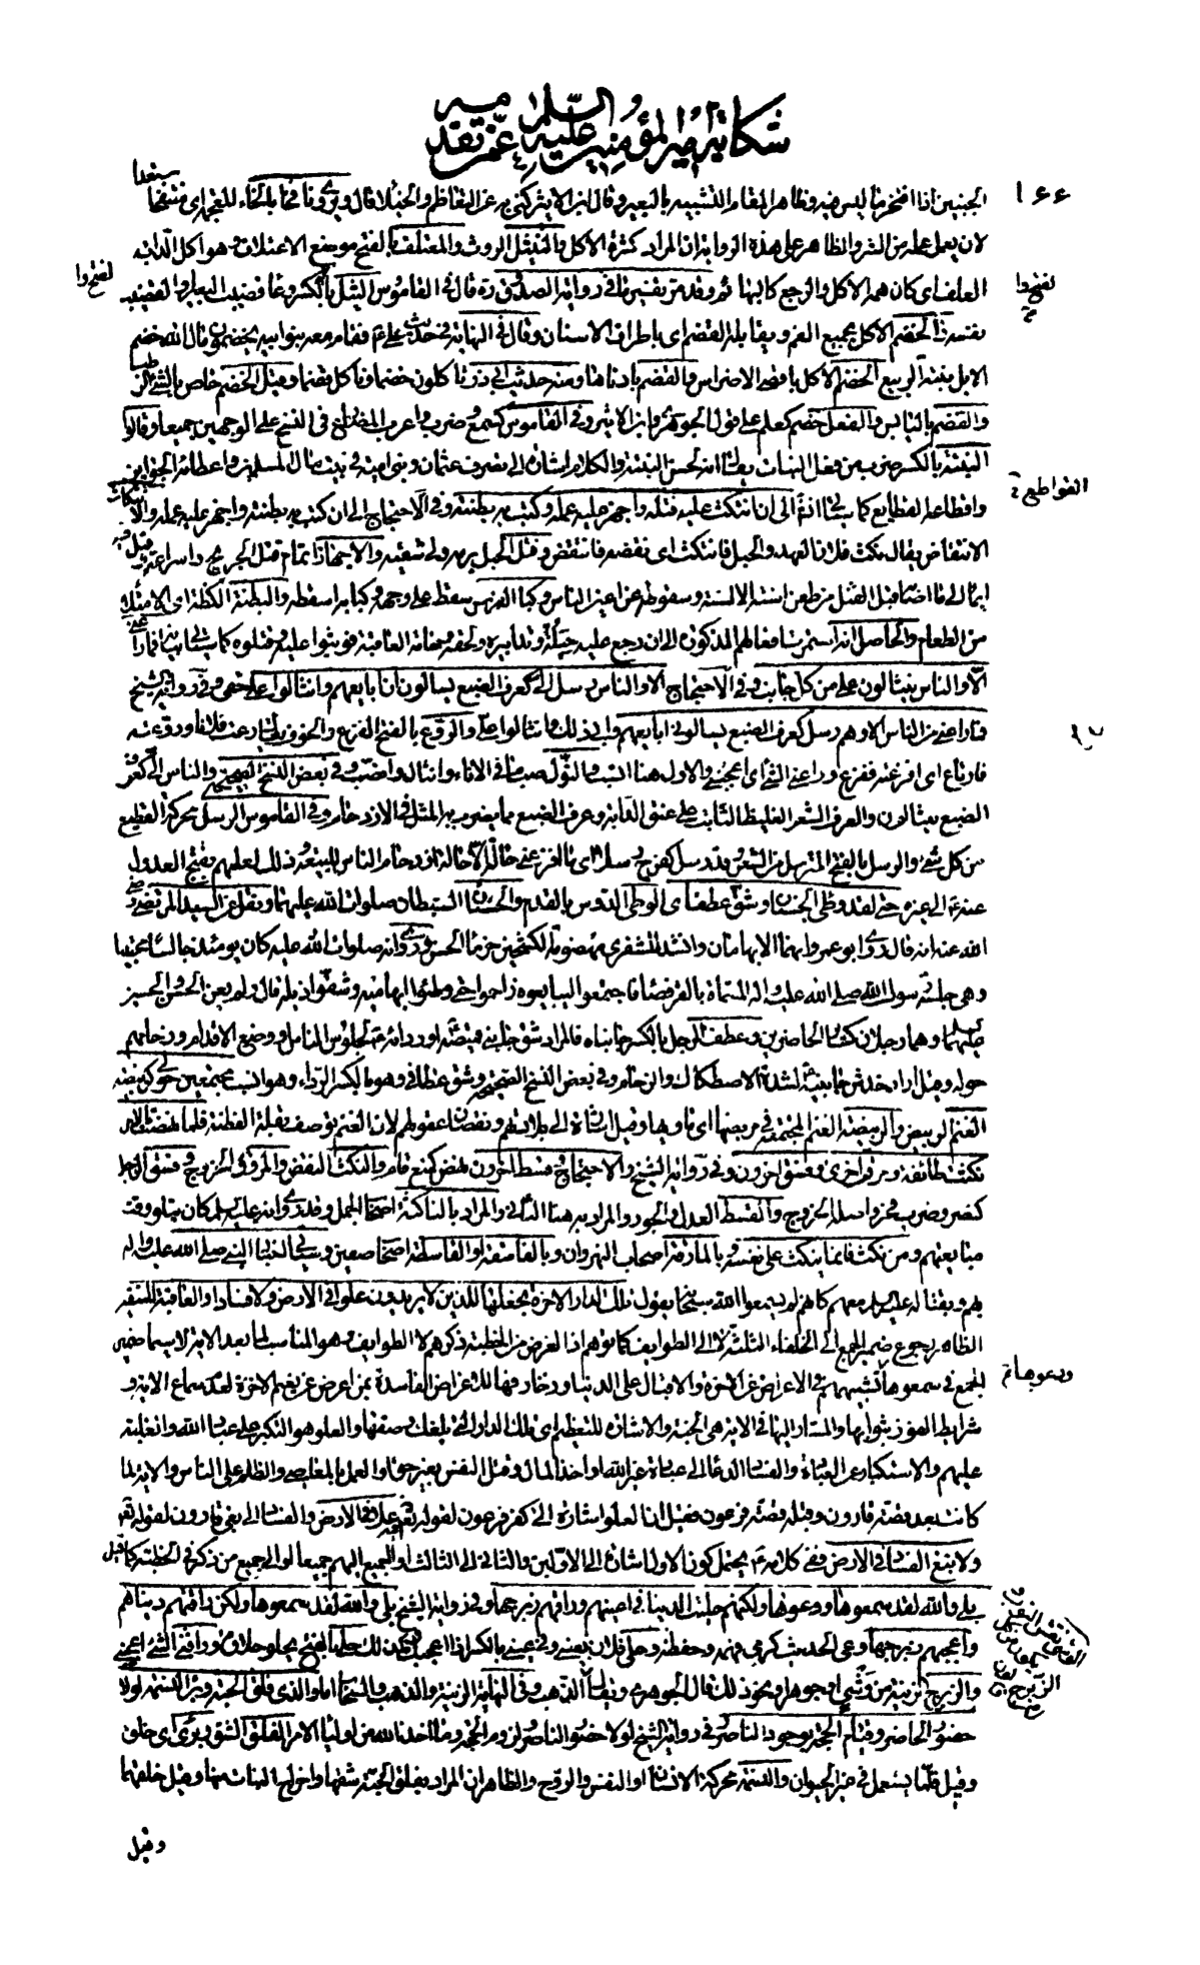 شكاية أمير المؤمنين عليه السلام عمّن تقدمه
١٦٦
الجنبين اذا افتخر بما ليس فيه وظاهر المقام التشبيه بالبعير وقال ابن الاثير كنى به عن التعاظم والخيلاء قال ويروى نافجا بالخاء المعجمة اى منتفخا
لان يعمل عمله من الشر والظاهر على هذه الرواية ان المراد كثرة الاكل والنثيل الروث والمعتلف بالفتح موضع الاعتلاف وهو اكل الدابة
العلف اى كان همه الاكل والرجع كالبهائم وقد مر تفسير ما فى رواية الصدوق ره قال فى القاموس الثيل بالكسر وعاء قضيب البعير او القضيب
نفسه والخضم الاكل بجميع الفم ويقابله القضم اى باطراف الاسنان وقال فى النهاية فى حديث على ع فقام معه بنو ابيه يخضمون مال الله خضم
الابل نبتة الربيع الخضم الاكل باقصى الاضراس والقضم بادناها ومنه حديث ابى ذر تاكلون خضما وناكل قضما وقيل الخضم خاص بالشئ الرطب
والقضم باليابس والفعل خضم كعلم على قول الجوهرى وابن الاثير وفى القاموس كسمع وضرب واعرب المضارع فى النسخ على الوجهين جميعا وقالوا
النبتة بالكسر ضرب من فعل النبات يقال انه لحسن النبتة والكلام اشارة الى تصرف عثمان وبنى امية فى بيت مال المسلمين واعطائه الجوائز
القواطع
واقطاعه القطايع كما سياتى انشاء الى ان انتكث عليه فتله واجهز عليه عمله وكبت به بطنته وفى الاحتجاج الى ان كبت به بطنته واجهز عليه عمله والانتكاث
الانتقاض يقال نكث فلان العهد والحبل فانتكث اى نقضه فانتقض وفتل الحبل برمه ولى شقيه والاجهاز اتمام قتل الجريح واسراعه وقيل فيه
ايماء الى ما اصابه قبل القتل من طعن اسنة الالسنة وسقوطه عن اعين الناس وكبا الفرس سقط على وجهه وكبا به اسقطه والبطنة الكظة اى الامتلاء
من الطعام والحاصل انه استمر بافعالهم المذكورة الى ان رجع عليه حيله وتدابيره ولحقه وخامة العاقبة فوثبوا عليه وقتلوه كما سياتى بيانه فما راعنى
الا والناس ينثالون على من كل جانب وفى الاحتجاج الا والناس رسل الى كعرف الضبع يسالون ان ابايعهم وانثالوا على حتى وفى رواية الشيخ
فما راعنى من الناس الا وهم رسل كعرف الضبع يسالونى ابايعهم وانثالوا على والروع بالفتح الفزع والخوف يقال رعت فلانا وروعته
فارتاع اى افزعته ففزع وراعنى الشئ اى اعجبنى والاول هنا انسب والثول صب ما فى الاناء وانثال انصب وفى بعض النسخ الصحيحة والناس الى كعرف
الضبع ينثالون والعرف الشعر الغليظ النابت على عنق الدابة وعرف الضبع مما يضرب به المثل فى الازدحام وفى القاموس الرسل محركة القطيع
من كل شئ والرسل بالفتح المترسل من الشعر وقد رسل كفرح رسلا اى ما افزعنى حالة الا حالة ازدحام الناس للبيعة وذلك لعلمهم بقبح العدول
عنه ع الى غيره حتى لقد وطئ الحسنان وشق عطفاى الوطى الدوس بالقدم والحسنان السبطان صلوات الله عليهما ونقل عن السيد المرتضى رضى
الله عنه انه قال روى ابو عمر وانهما الابهامان وانشد للشنفرى مهضومة الكشحين خرماء الحسن وروى انه صلوات الله عليه كان يومئذ جالسا محتبيا
وهى جلسة رسول الله صلى الله عليه واله المسماة بالقرفصاء فاجتمعوا ليبايعوه زاحموا حتى وطئوا ابهاميه وشقوا ذيله قال ولم يعن الحسن والحسين
عليهما وهما رجلان كسائر الحاضرين وعطف الرجل بالكسر جانباه فالمراد شق جانبى قميصه او ردائه ع لجلوس الناس او وضع الاقدام وزحامهم
حوله وقيل اراد خدش جانبيه لشدة الاصطكاك والزحام وفى بعض النسخ الصحيحة وشق عطافى وهو بالكسر الرداء وهو انسب مجتمعين حولى كربيضة
الغنم الربيض والربيضة الغنم المجتمعة فى مربضها اى ماويها وقيل اشارة الى بلادتهم ونقصان عقولهم لان الغنم توصف بقلة الفطنة فلما نهضت بالامر
نكثت طائفة ومرقت اخرى وفسق اخرون وفى رواية الشيخ والاحتجاج وقسط اخرون نهض كمنع قام والنكث النقض والمروق الخروج وفسق الرجل
كنصر وضرب فجر واصله الخروج والقسط العدل والجور والمراد به هنا الثانى والمراد بالناكثة اصحاب الجمل وقد روى انه عليه السلام كان يتلو وقت
مبايعتهم ومن نكث فانما ينكث على نفسه وبالمارقة اصحاب النهروان وبالفاسقة او القاسطة اصحاب صفين وسياتى اخبار النبى صلى الله عليه واله
بهم وبقتاله عليه السلام معهم كانهم لم يسمعوا الله سبحانه يقول تلك الدار الاخرة نجعلها للذين لا يريدون علوا فى الارض ولا فسادا والعاقبة للمتقين
الظاهر رجوع ضمير الجمع الى الخلفاء الثلثة لا الى الطوايف كما توهم اذ الغرض من الخطبة ذكرهم لا الطوايف وهو المناسب لما بعد الاية لا سيما ضمير
الجمع فى سمعوها تشبيههم فى الاعراض عن الاخرة والاقبال على الدنيا وزخارفها للاغراض الفاسدة بمن اعرض عن نعيم الاخرة لعدم سماع الاية و
شرايط الفوز بثوابها والمشار اليها فى الاية هى الجنة والاشارة للتعظيم اى تلك الدار التى بلغك وصفها والعلو هو التكبر على عباد الله والغلبة
عليهم والاستكبار عن العبادة والفساد الدعاء الى عبادة غير الله او اخذ المال وقتل النفس بغير حق او العمل بالمعاصى والظلم على الناس والاية لما
كانت بعد قصة قارون وقبله قصة فرعون فقيل ان العلو اشارة الى كفر فرعون لقوله تعالى علا فى الارض والفساد الى بغى قارون لقوله تعالى
ولا تبغ الفساد فى الارض ففى كلامه ع يحتمل كون الاول اشارة الى الاولين والثانى الى الثالث او الجميع اليهم جميعا او الى جميع من ذكر فى الخطبة كما قيل
بلى والله لقد سمعوها ووعوها ولكنهم حليت الدنيا فى اعينهم وراقهم زبرجها وفى رواية الشيخ بلى والله لقد سمعوها ولكن راقتهم دنياهم
واعجبهم زبرجها وعى الحديث كرمى فهمه وحفظه وحلى فلان بعينى وفى عينى بالكسر اذا اعجبك وكذلك حلى بالفتح يحلو حلاوة وراقنى الشئ اعجبنى
والزبرج الزينة من وشى او جوهر ونحو ذلك قال الجوهرى ويقال الذهب وفى النهاية الزينة والذهب والسحاب اما والذى فلق الحبة وبرء النسمة لولا
حضور الحاضر وقيام الحجة بوجود الناصر وفى رواية الشيخ لولا حضور الناصر ولزوم الحجة وما اخذ الله من اولياء الامر الفلق الشق وبرئ اى خلق
وقيل قلما يستعمل فى غير الحيوان والنسمة محركة الانسان او النفس والروح والظاهر ان المراد بفلق الحبة شقها واخراج النبات منها وقيل خلقها
وقيل